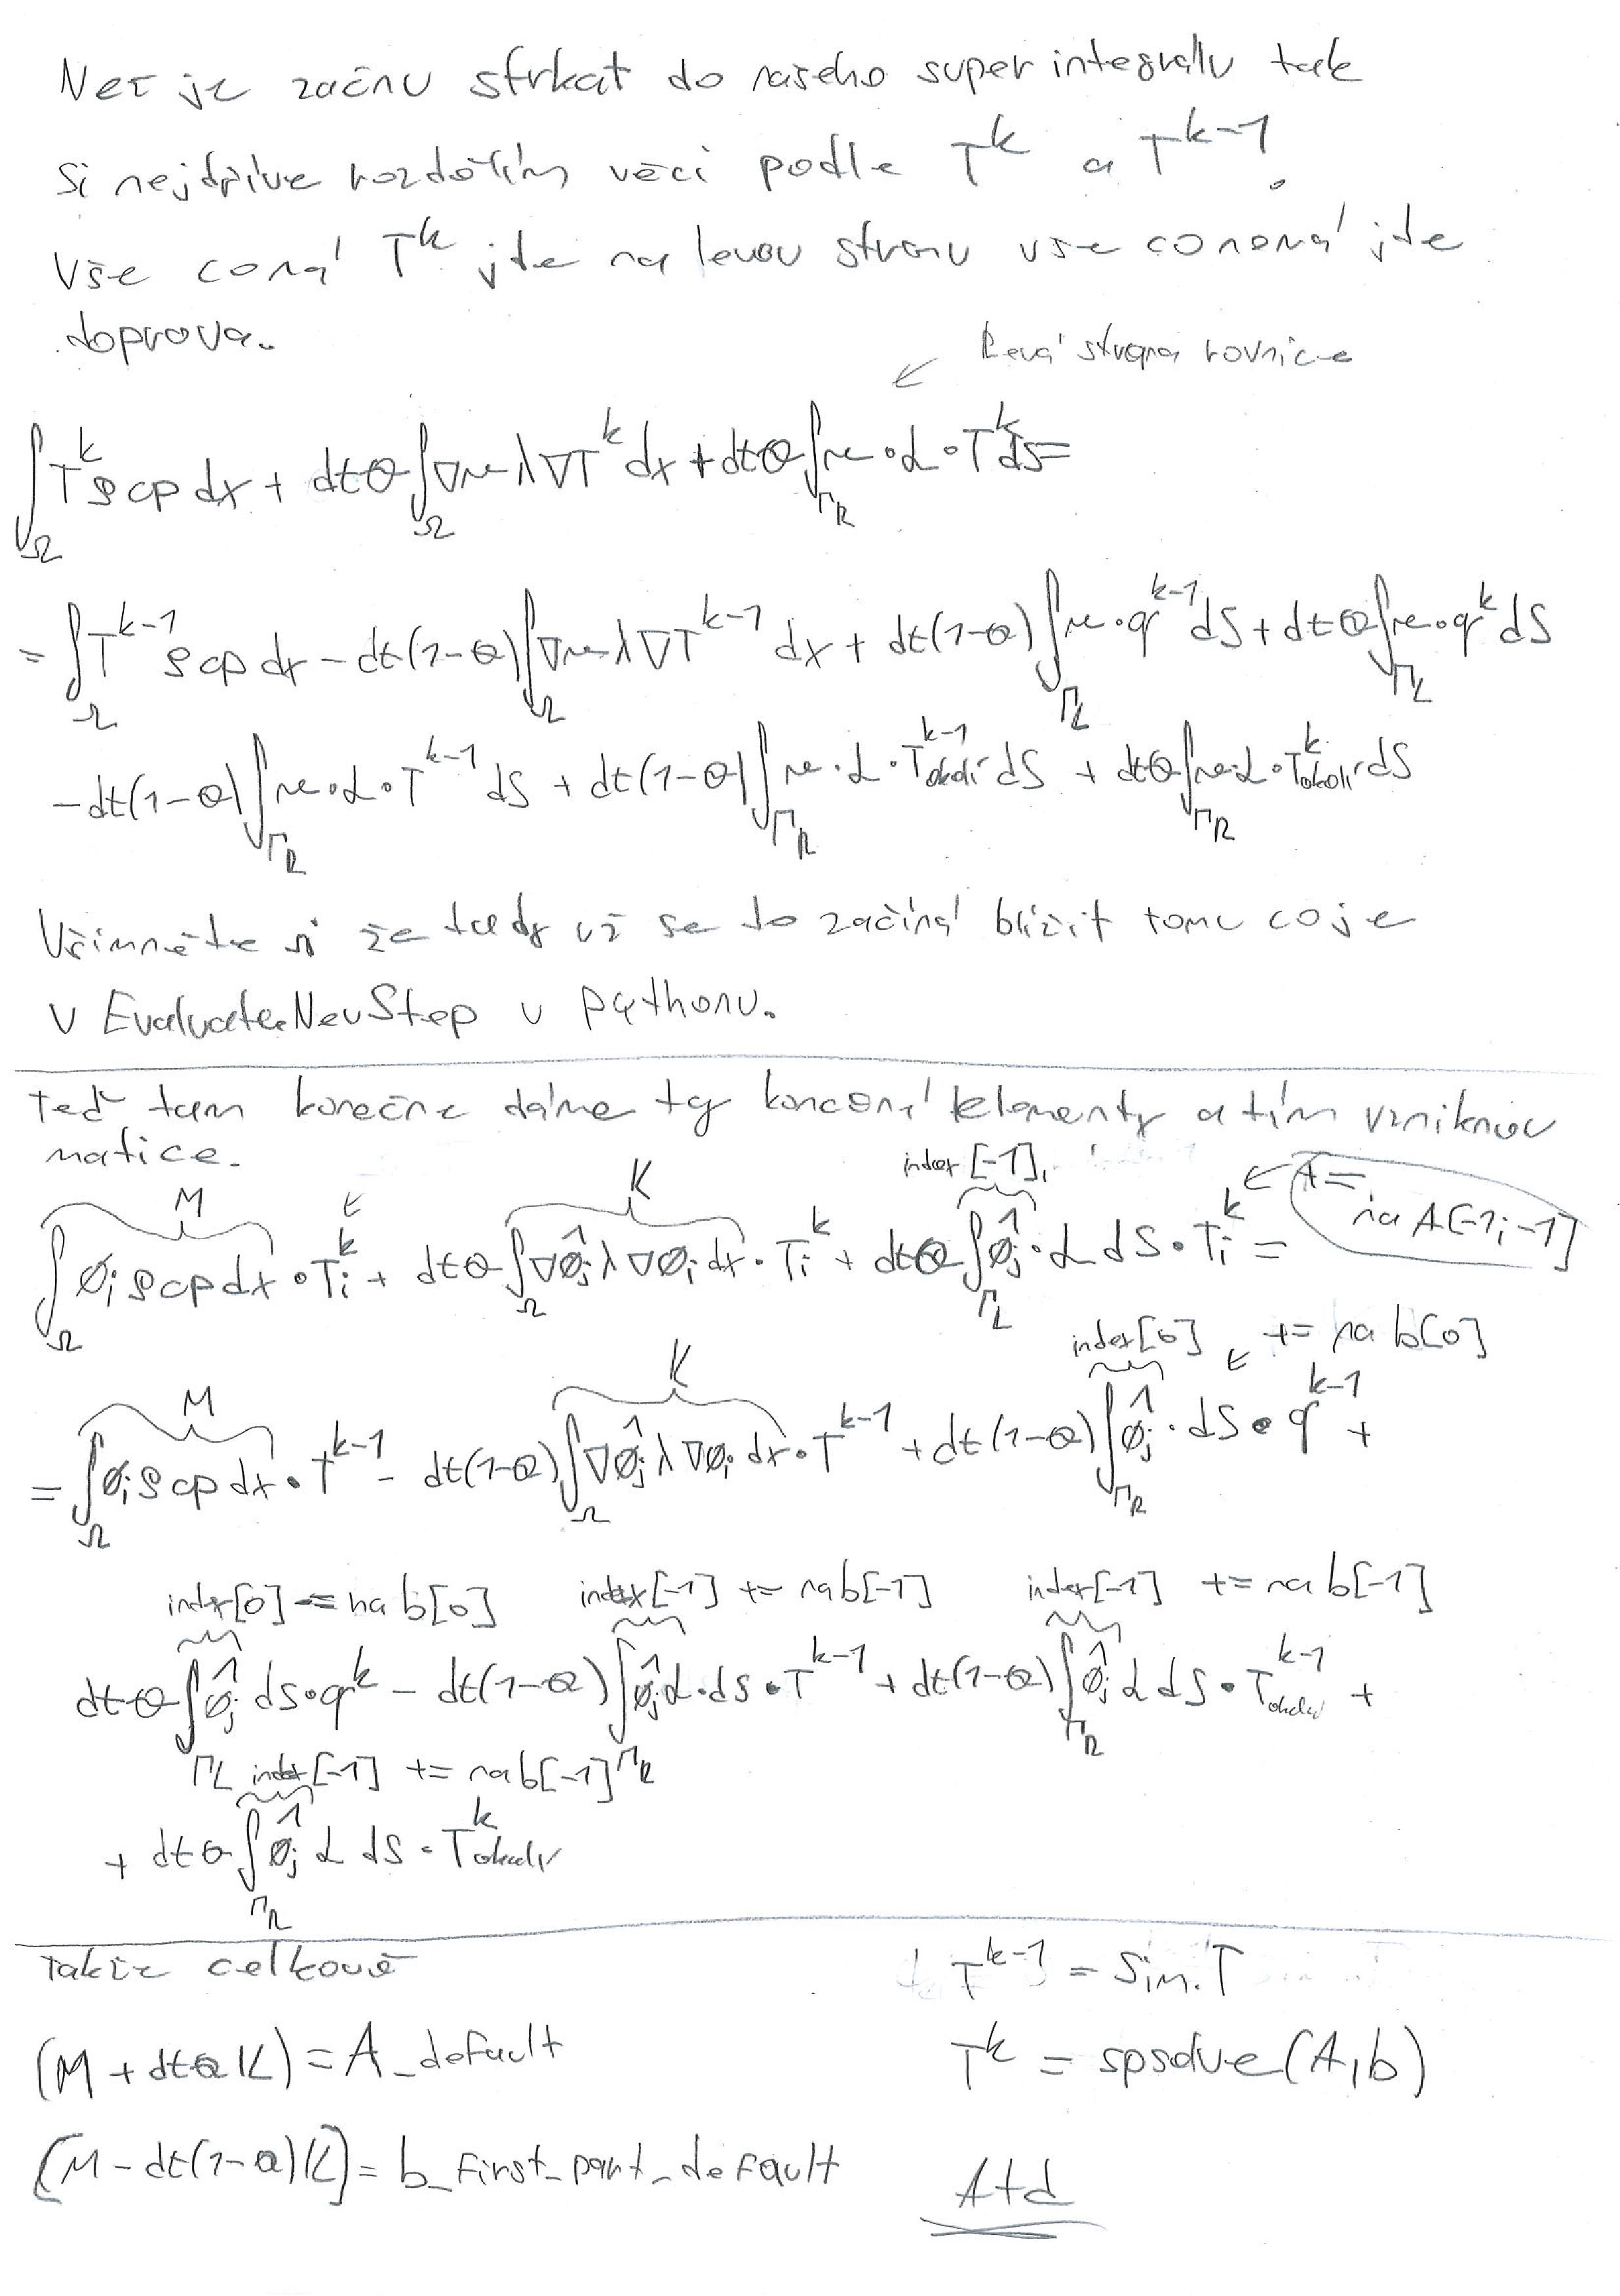 Než je začnu strkat do našeho super integrálu tak
si nejdříve rozdělím věci podle T^k a T^k-1.
Vše co má T^k jde na levou stranu vše co nemá jde
doprava.
← Levá strana rovnice
∫_Ω T^k ρ cp dx + dt Θ ∫_Ω ∇w λ ∇T^k dx + dt Θ ∫_ΓR w · α · T^k dS =
= ∫_Ω T^k-1 ρ cp dx - dt(1-Θ) ∫_Ω ∇w λ ∇T^k-1 dx + dt(1-Θ) ∫_ΓL w · q^k-1 dS + dt Θ ∫_ΓL w · q^k dS
- dt(1-Θ) ∫_ΓR w · α · T^k-1 dS + dt(1-Θ) ∫_ΓR w · α · T_okolí^k-1 dS + dt Θ ∫_ΓR w · α · T_okolí^k dS
Všimněte si že tady už se to začíná blížit tomu co je
v EvaluateNewStep v pythonu.
Teď tam konečně dáme ty konečné elementy a tím vzniknou
matice.
M K index[-1], ← A += na A[-1;-1]
∫_Ω ϕi ρ cp dx · Ti^k + dt Θ ∫_Ω ∇ϕj λ ∇ϕi dx · Ti^k + dt Θ ∫_ΓL ϕj^1 · α dS · Ti^k =
M K index[0] ← += na b[0]
= ∫_Ω ϕi ρ cp dx · T^k-1 - dt(1-Θ) ∫_Ω ∇ϕj λ ∇ϕi dx · T^k-1 + dt(1-Θ) ∫_ΓR ϕj^1 · dS · q^k-1 +
index[0] += na b[0] index[-1] += na b[-1] index[-1] += na b[-1]
dt Θ ∫_ΓL ϕj^1 dS · q^k - dt(1-Θ) ∫_ΓR ϕj^1 α · dS · T^k-1 + dt(1-Θ) ∫_ΓR ϕj^1 α dS · T_okolí^k-1 +
index[-1] += na b[-1]
+ dt Θ ∫_ΓR ϕj^1 α dS · T_okolí^k
Takže celkově
T^k-1 = Sim.T
(M + dt Θ K) = A_default
T^k = spsolve(A,b)
[M - dt(1-Θ)K] = b_first_part_default
Atd